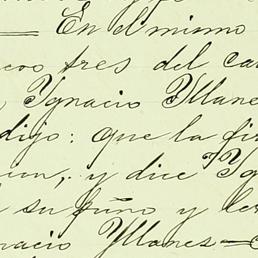 En el mismo
cos tres del ca
Ygnacio Yllane
dijo: que la fir
cion, y dice "Yg
su puño y le
nacio Yllanes